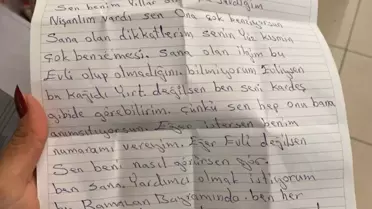 Sen benim Yıllar
Nişanlım vardı sen Ona çok benziyorsun
Sana olan dikketlerim senin Yüz kısmın
çok benzemesi. Sana olan ilgim bu
Evli olup olmadığını bilmiyorum Evliysen
bu kağıdı Yırt değilsen ben seni kardeş
gibide görebilirim. çünkü sen hep onu bana
anımsatıyorsun. Eğer istersen benim
numaramı vereyim. Eğer Evli değilsen
Sen beni nasıl görürsen gör.
ben sana Yardımcı olmak istiyorum
bu Ramazan Bayramında ben her